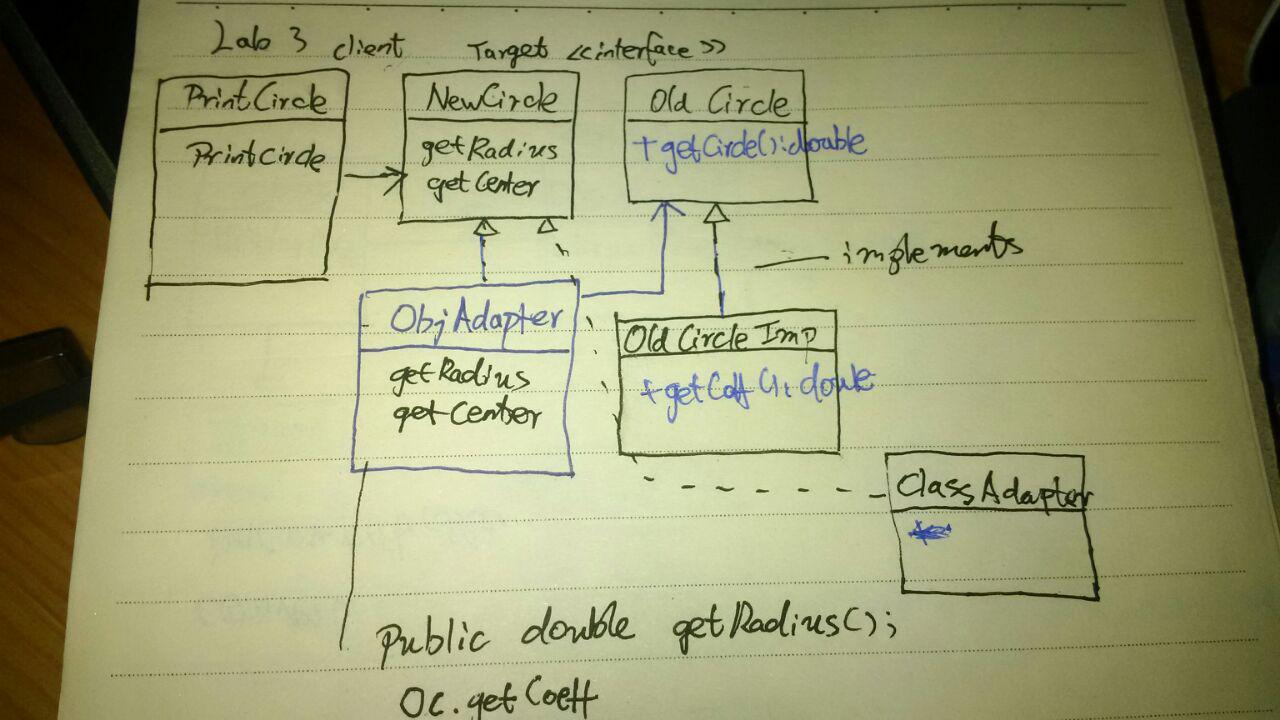 Lab 3 client Target <<interface>>
PrintCircle
PrintCircle
NewCircle
getRadius
getCenter
Old Circle
+getCircle():double
implements
ObjAdapter
getRadius
getCenter
OldCircleImp
+getCoff():double
ClassAdapter
public double getRadius();
OC.getCoeff